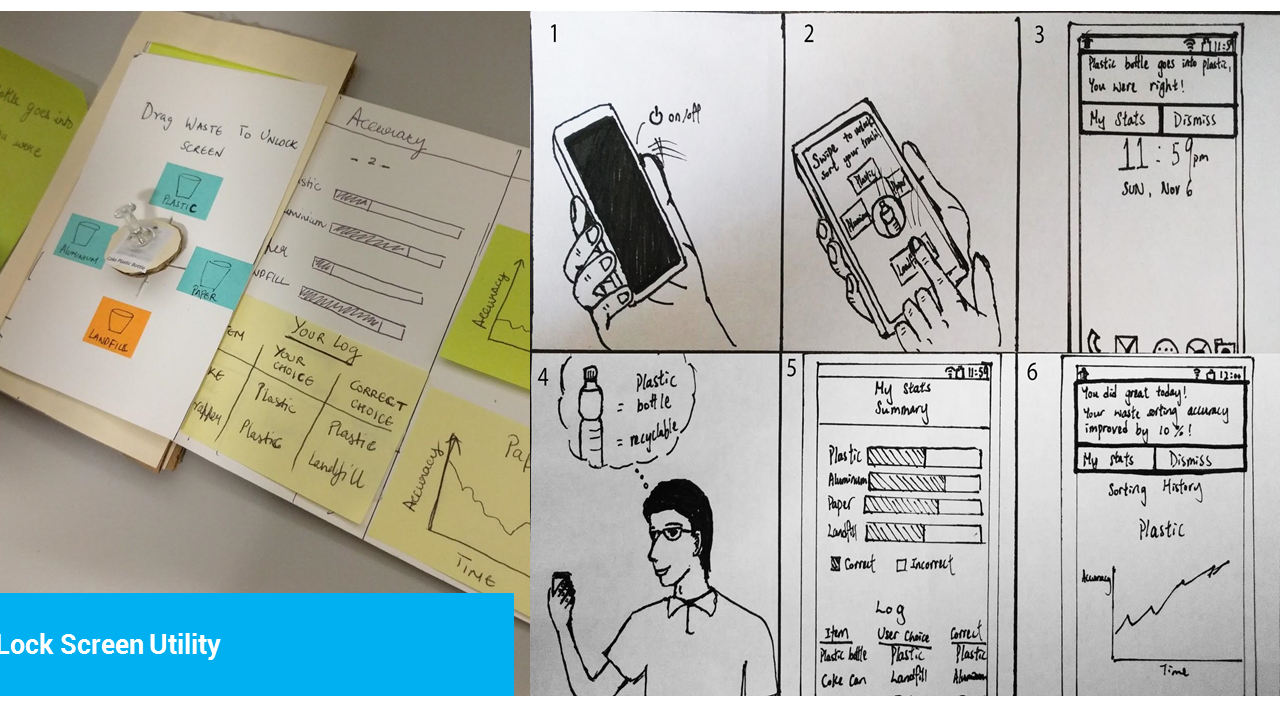 goes into
were
Drag WASTE TO UNLOCK
SCREEN
PLASTIC
ALUMINIUM
PAPER
LANDFILL
Coke Plastic Bottle
Accuracy
- 2 -
stic
uminium
per
NDFILL
YOUR LOG
TEM
YOUR
CHOICE
CORRECT
CHOICE
KE
Plastic
Plastic
rapper
Plastic
Landfill
Accuracy
Accuracy
Pap
TIME
Lock Screen Utility
1
on/off
2
Swipe to unlock
sort your trash!
Plastic
Paper
Aluminum
3
11:59
Plastic bottle goes into plastic,
You were right!
My Stats
Dismiss
11:59pm
SUN, Nov 6
4
Plastic
= bottle
= recyclable
5
11:59
My Stats
Summary
Plastic
Aluminum
Paper
Landfill
Correct
Incorrect
Log
Item User Choice Correct
Plastic bottle Plastic Plastic
Coke Can Landfill Aluminum
6
12:00
You did great today!
Your waste sorting accuracy
improved by 10%!
My stats
Dismiss
Sorting History
Plastic
Accuracy
Time